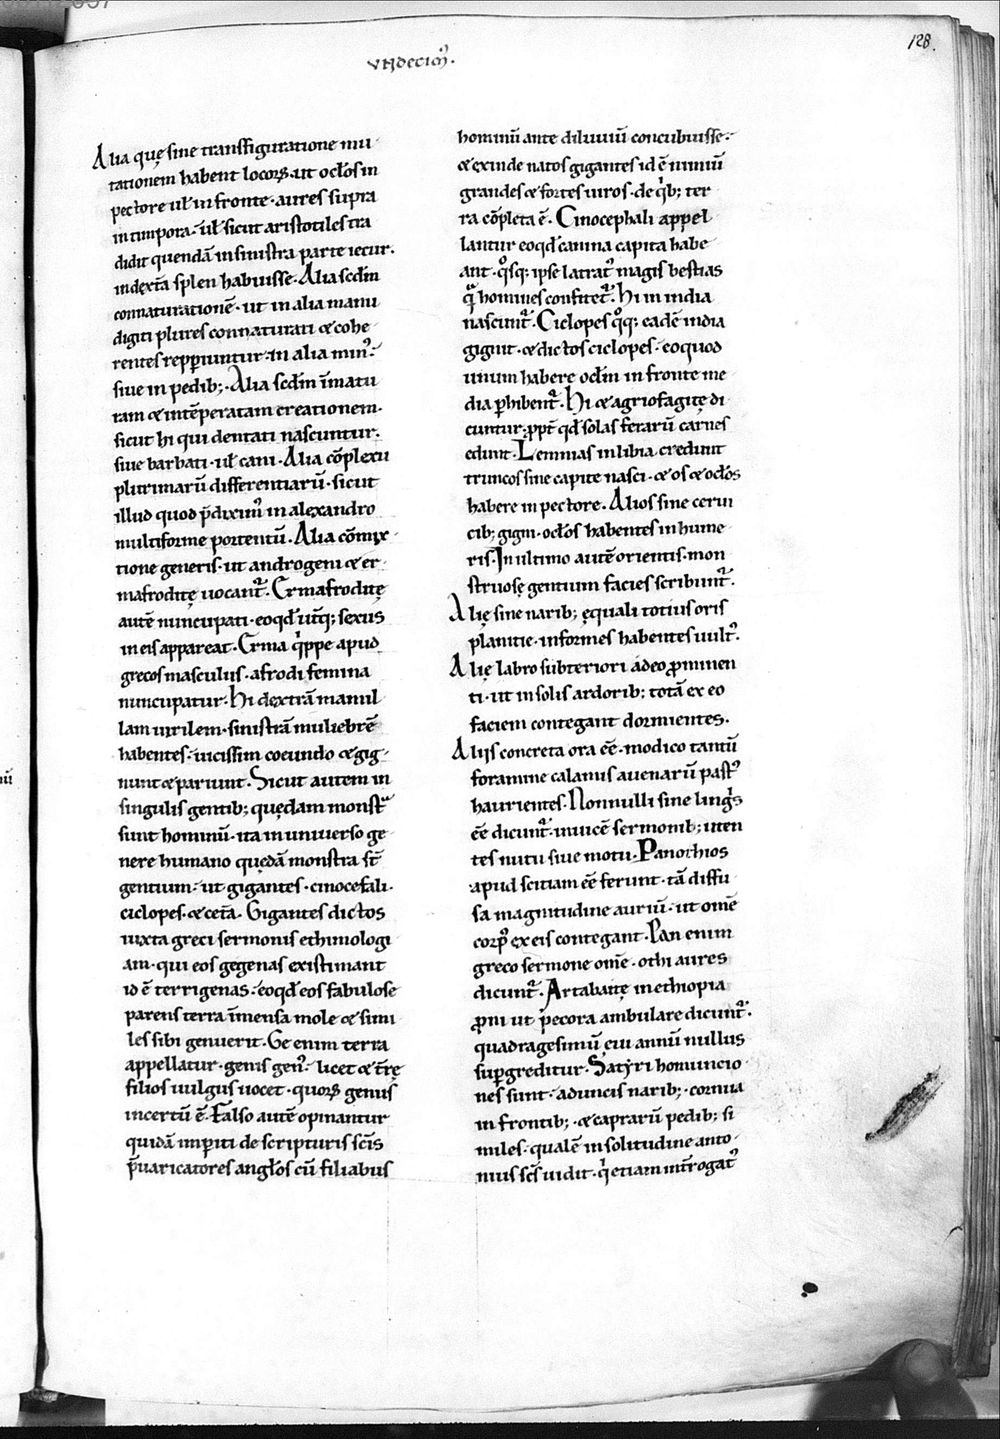 128.
vndecim᷒.
Alia quę sine transfiguratione mu
tationem habent locorꝝ. ut oclo̅s in
pectore ul̅ in fronte. aures supra
in timpora. ul̅ sicut aristotiles tra
didit quendā in sinistra parte iecur.
in dext̄a splen habuisse. Alia scdm̅
connaturationē. ut in alia manu
digiti plures connaturati & cohe
rentes repꝑiuntur. in alia min᷒.
siue in pedib;. Alia scdm̅ īmatu
ram & intēperatam creationem.
sicut hi qui dentati nascuntur.
siue barbati. ul̅ cani. Alia cōplexu
plurimarū differentiarū. sicut
illud quod p̄dixim᷒ in alexandro
multiforme portentū. Alia cōmix
tione generis. ut androgeni & er
mafroditę uocant᷑. Ermafroditę
autē nuncupati. eoqd̅ utq; sexus
in eis appareat. Erma qͥppe apud
grecos masculus. afrodi femina
nuncupatur. Hi dextrā mamil
lam uirilem. sinistrā muliebrē
habentes. uicissim coeundo & gig
nunt & pariunt. Sicut autem in
singulis gentib; quędam monstᷓ
sunt hominū. ita in uniuerso ge
nere humano quędā monstra st̅
gentium. ut gigantes. cinocefali.
ciclopes. & cet̄a. Gigantes dictos
iuxta greci sermonis ethimologi
am. qui eos gegenas existimant
id ē terrigenas. eoqd̅ eos fabulose
parens terra īmensa mole & simi
les sibi genuerit. Ge enim terra
appellatur. genis gen᷒. licet & t̄rę
filios uulgus uocet. quorꝝ genus
incertū ē. Falso autē opinantur
quidā imꝑiti de scripturis scīs
p̄uaricatores anglo̅s cū filiabus
hominū ante diluuiū concubuisse.
& exinde natos gigantes id ē nimiū
grandes & fortes uiros. de qͥb; ter
ra cōpleta ē. Cinocephali appel
lantur eoqd̅ canina capita habe
ant. qͦsq; ipse latrat᷒ magis bestias
qᷓ homines confitet᷑. Hi in india
nascunt᷑. Ciclopes qͦq; eadē india
gignit. & dictos ciclopes. eoquod
unum habere oclm̅ in fronte me
dia ꝑhibent᷑. Hi & agriofagitę di
cuntur. ꝓpt̄ qd̅ solas ferarū carnes
edunt. Lemnias in libia credunt
truncos sine capite nasci. & os & oclo̅s
habere in pectore. Alios sine cerui
cib; gigni. oclo̅s habentes in hume
ris. In ultimo autē orientis. mon
struosę gentium facies scribunt᷑.
Alię sine narib; ęquali totius oris
planitie. informes habentes uult᷒.
Alię labro subteriori adeo ꝓminen
ti. ut in solis ardorib; totā ex eo
faciem contegant dormientes.
Aliis concreta ora eē. modico tantū
foramine calamis auenarū past᷒
haurientes. Nonnulli sine lingͥs
eē dicunt᷑. inuicē sermonib; uten
tes nutu siue motu. Panothios
apud scitiam eē ferunt. tā diffu
sa magnitudine auriū. ut omē
corp᷒ ex eis contegant. Pan enim
greco sermone omē. othi aures
dicunt᷑. Artabatitę in ethiopia
ꝓni ut p̄ecora ambulare dicunt᷑.
quadragesimū eui annū nullus
suꝑgreditur. Satyri homuncio
nes sunt. aduncis narib;. cornua
in frontib;. & caprarū pedib; si
miles. qualē in solitudine anto
nius scs̅ uidit. qͥ etiam int̄rogat᷒